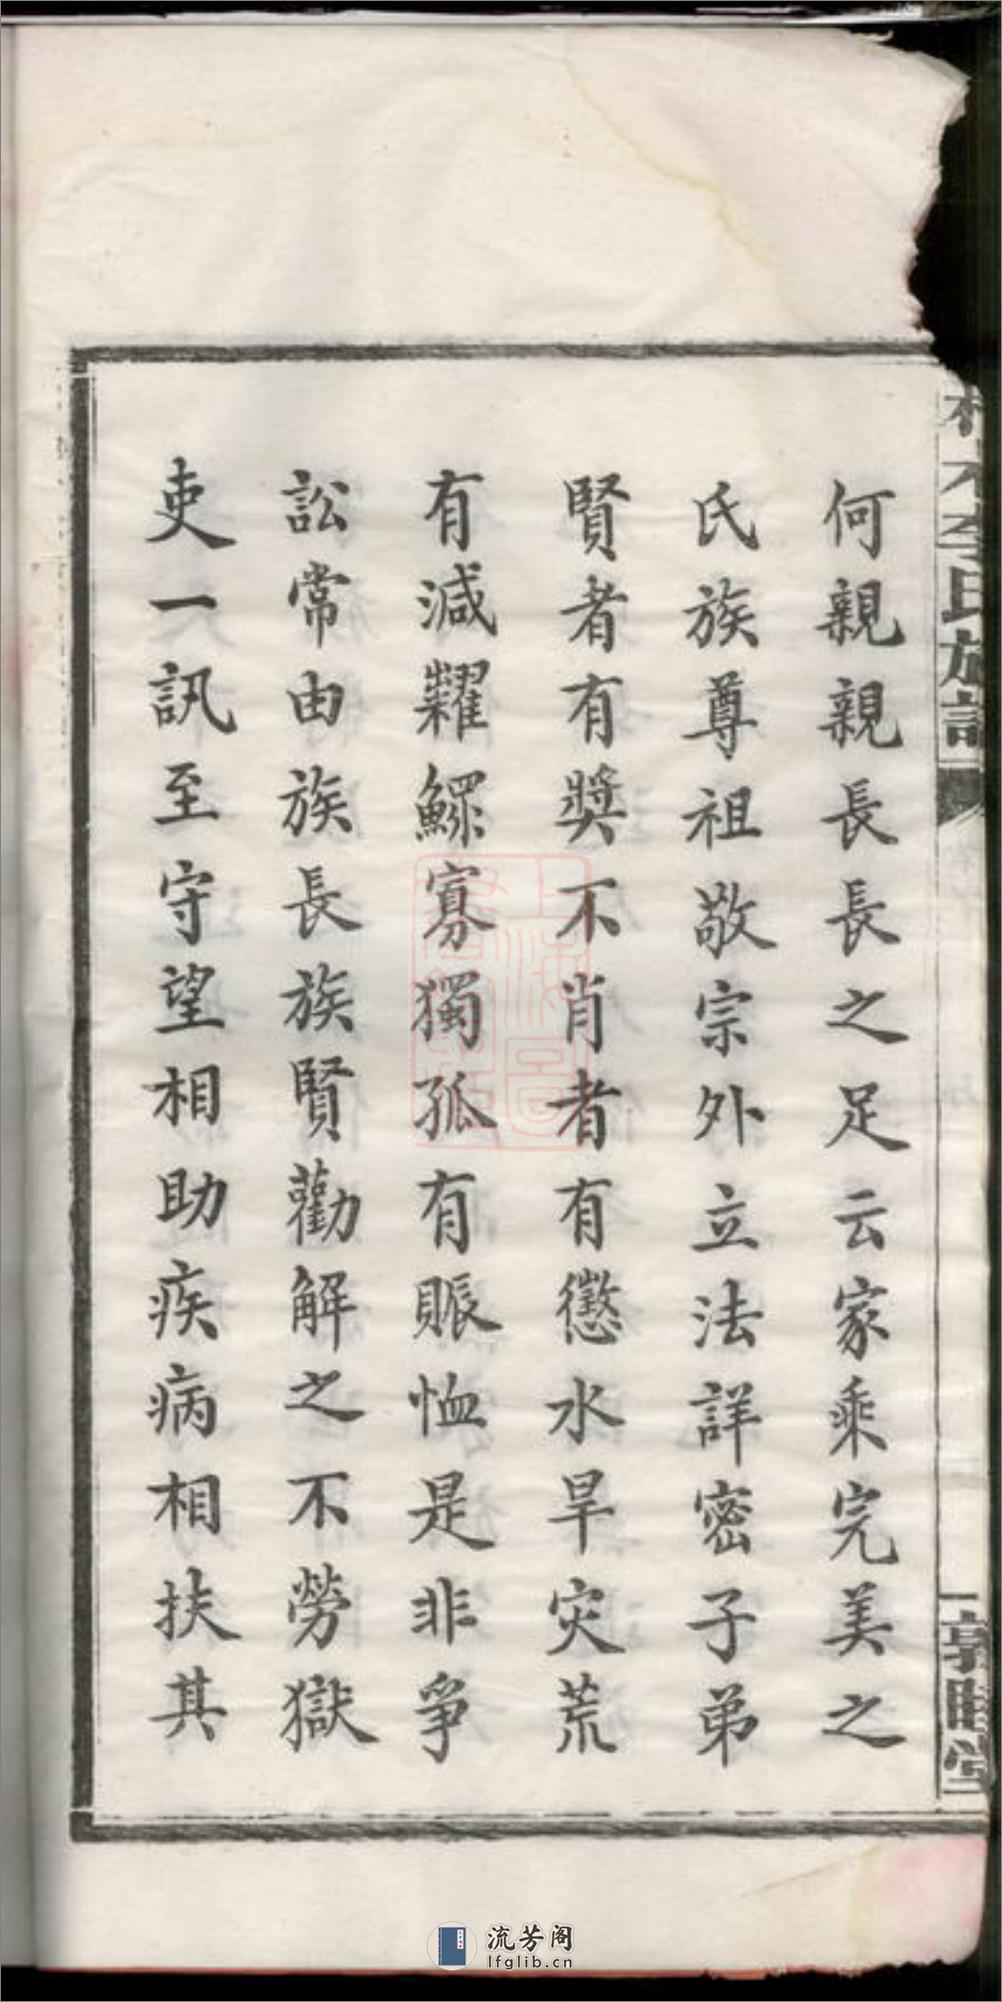 何親親長長之足云家乘完美之
氏族尊祖敬宗外立法詳密子弟
賢者有獎不肖者有懲水旱灾荒
有減糶鰥寡獨孤有賑恤是非爭
訟常由族長族賢勸解之不勞獄
吏一訊至守望相助疾病相扶其
李氏族譜
敦睦堂
上海圖
流芳阁
lfglib.cn